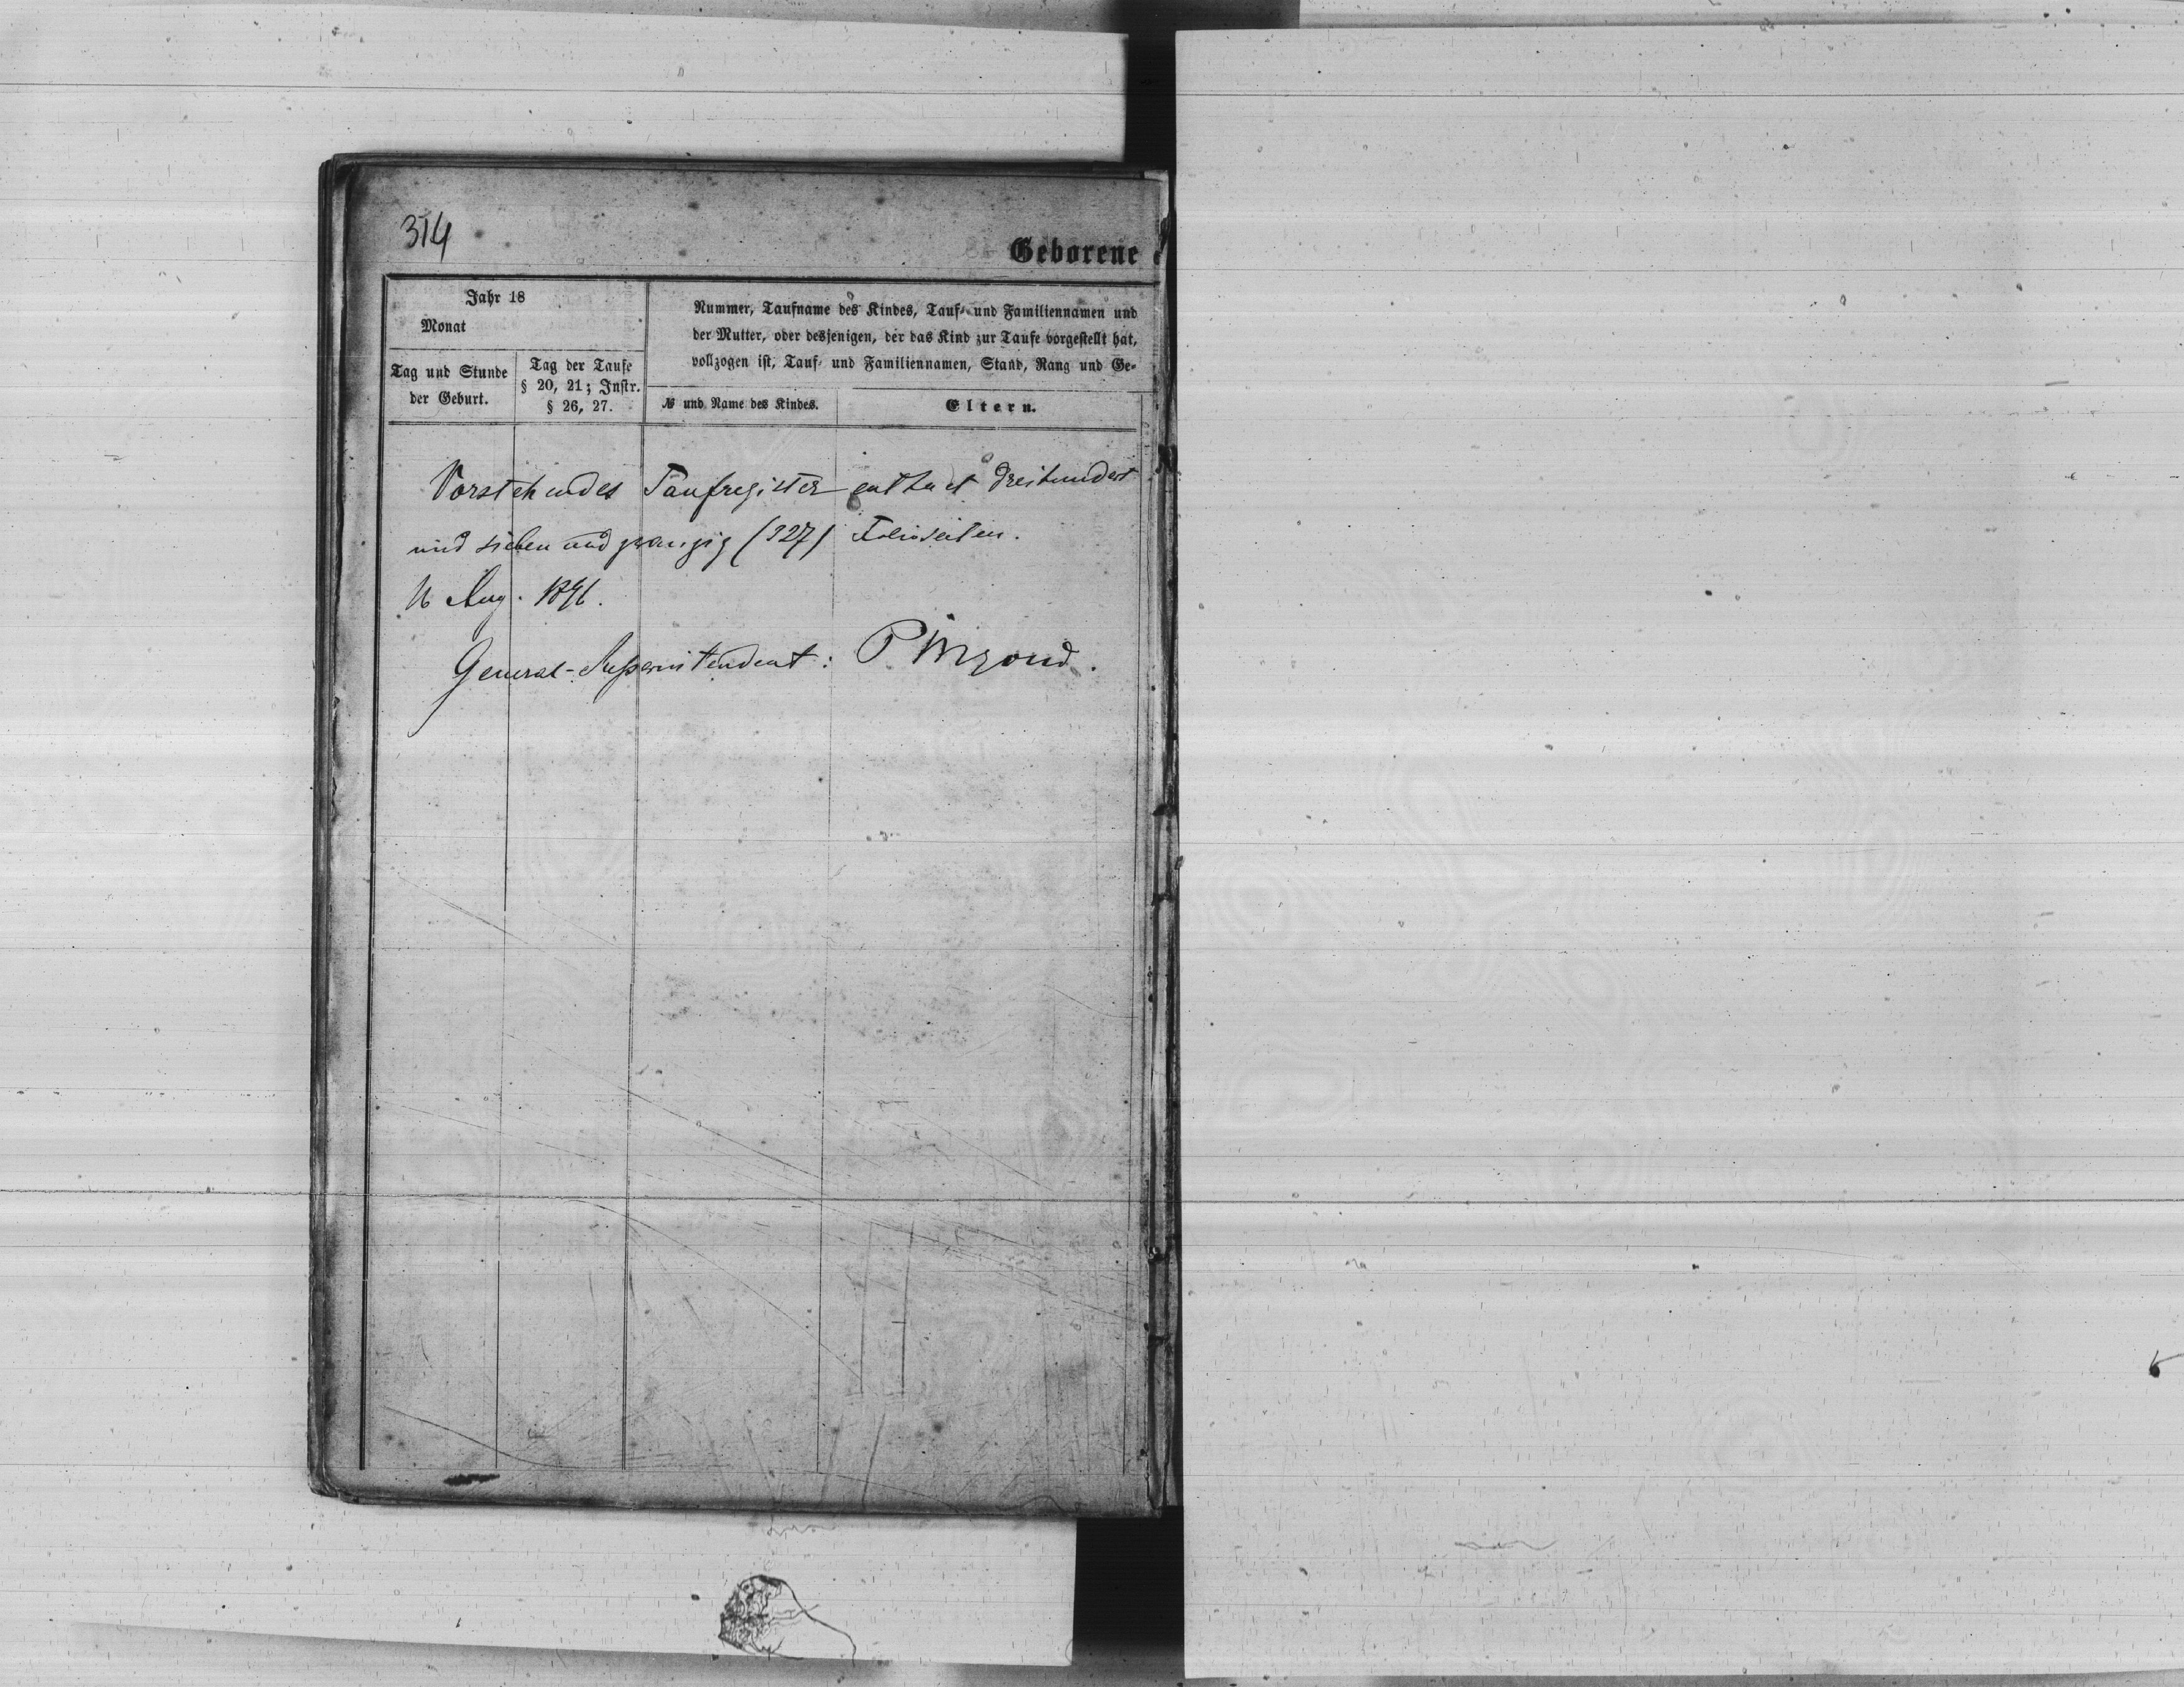 314
Geborene
Jahr 18
Monat
Tag und Stunde
der Geburt.
Tag der Taufe
§ 20, 21; Instr.
§ 26, 27.
Nummer, Taufname des Kindes, Tauf- und Familiennamen und
der Mutter, oder desjenigen, der das Kind zur Taufe vorgestellt hat,
vollzogen ist, Tauf- und Familiennamen, Stand, Rang und Ge-
№ und Name des Kindes.
Eltern.
Vorstehendes Taufregister enthält dreihundert
und sieben und zwanzig (327) Folioseiten.
16 Aug.
General-Superintendent: P